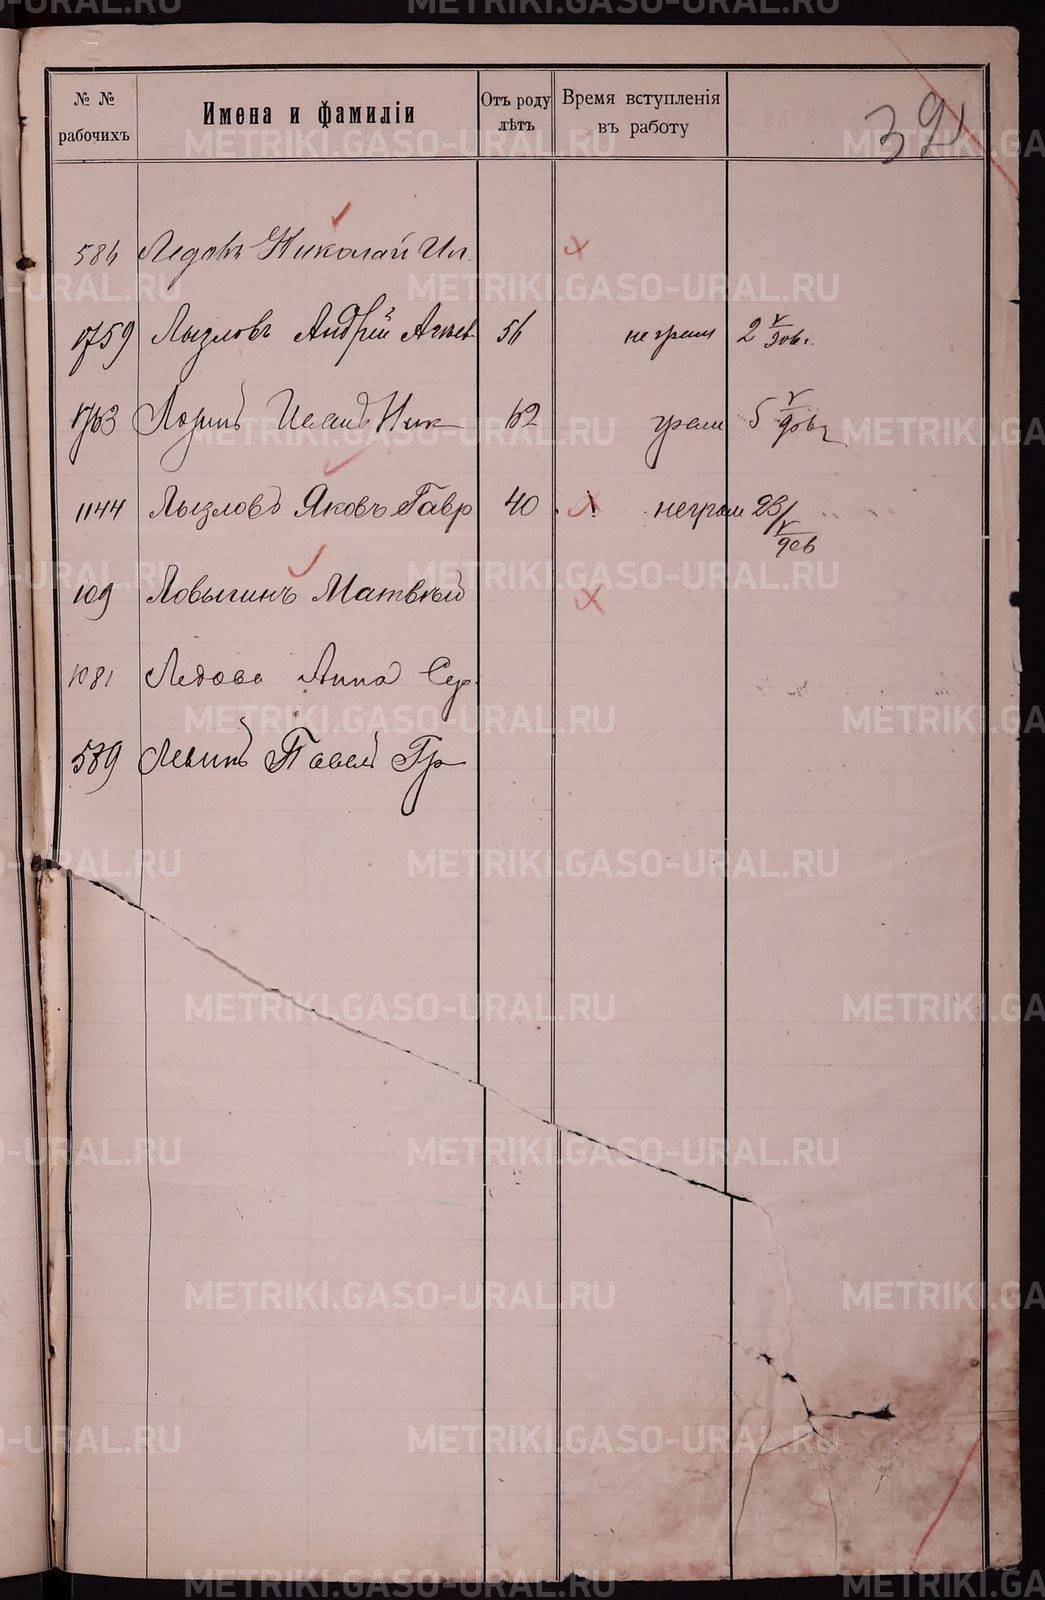 № № рабочихъ Имена и фамиліи Отъ роду лѣтъ Время вступленія въ работу 39
586 Ледовъ Николай Ил.
1759 Лызловъ Андрей 56 не грам 2 V/906.
1763 Лозинъ Ник 62 грам 5 V/906
1144 Лызловъ Яковъ Гавр 40 неграм 23/V/906
109 Ловыгинъ Матвѣй
1081 Ледова Анна Сер.
589 Левинъ Павелъ Гр
METRIKI.GASO-URAL.RU